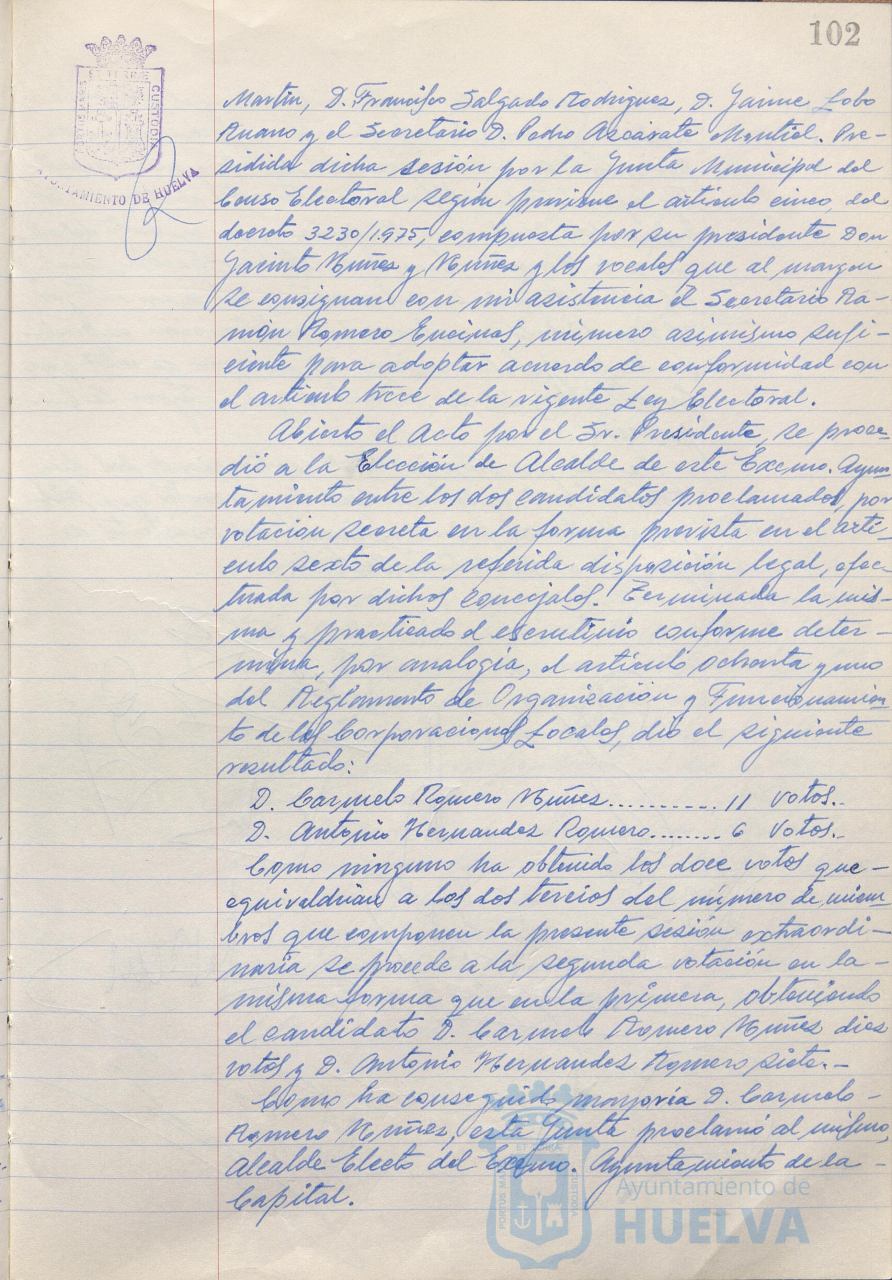 102
PORTUS MARIS ET TERRAE CUSTODIA
AYUNTAMIENTO DE HUELVA
Martin, D. Francisco Salgado Rodriguez, D. Jaime Lobo
Ruano y el Secretario D. Pedro Azcárate Montiel. Pre-
sidida dicha sesión por la Junta Municipal del
Censo Electoral según previene el artículo cinco del
decreto 3230/1.975, compuesta por su presidente Don
Jacinto Núñez y Núñez y los vocales que al margen
se consignan con mi asistencia el Secretario Ra-
món Romero Encinas, número asimismo sufi-
ciente para adoptar acuerdo de conformidad con
el artículo trece de la vigente Ley Electoral.
Abierto el Acto por el Sr. Presidente, se proce-
dió a la Elección de Alcalde de este Excmo. Ayun
tamiento entre los dos candidatos proclamados, por
votación secreta en la forma prevista en el artí-
culo sexto de la referida disposición legal, efec-
tuada por dichos concejales. Terminada la mis-
ma y practicado el escrutinio conforme deter-
mina, por analogía, el artículo ochenta y uno
del Reglamento de Organización y Funcionamien
to de las Corporaciones Locales, dió el siguiente
resultado:
D. Carmelo Romero Núñez.......... 11 votos..
D. Antonio Hernandez Romero....... 6 votos.-
Como ninguno ha obtenido los doce votos que-
equivaldrían a los dos tercios del número de miem
bros que componen la presente sesión extraordi-
naria se procede a la segunda votación en la-
misma forma que en la primera, obteniendo
el candidato D. Carmelo Romero Núñez diez
votos y D. Antonio Hernandez Romero siete.-
Como ha conseguido mayoría D. Carmelo-
Romero Núñez, esta Junta proclamó al mismo,
Alcalde Electo del Excmo. Ayuntamiento de la-
Capital.
Ayuntamiento de
HUELVA